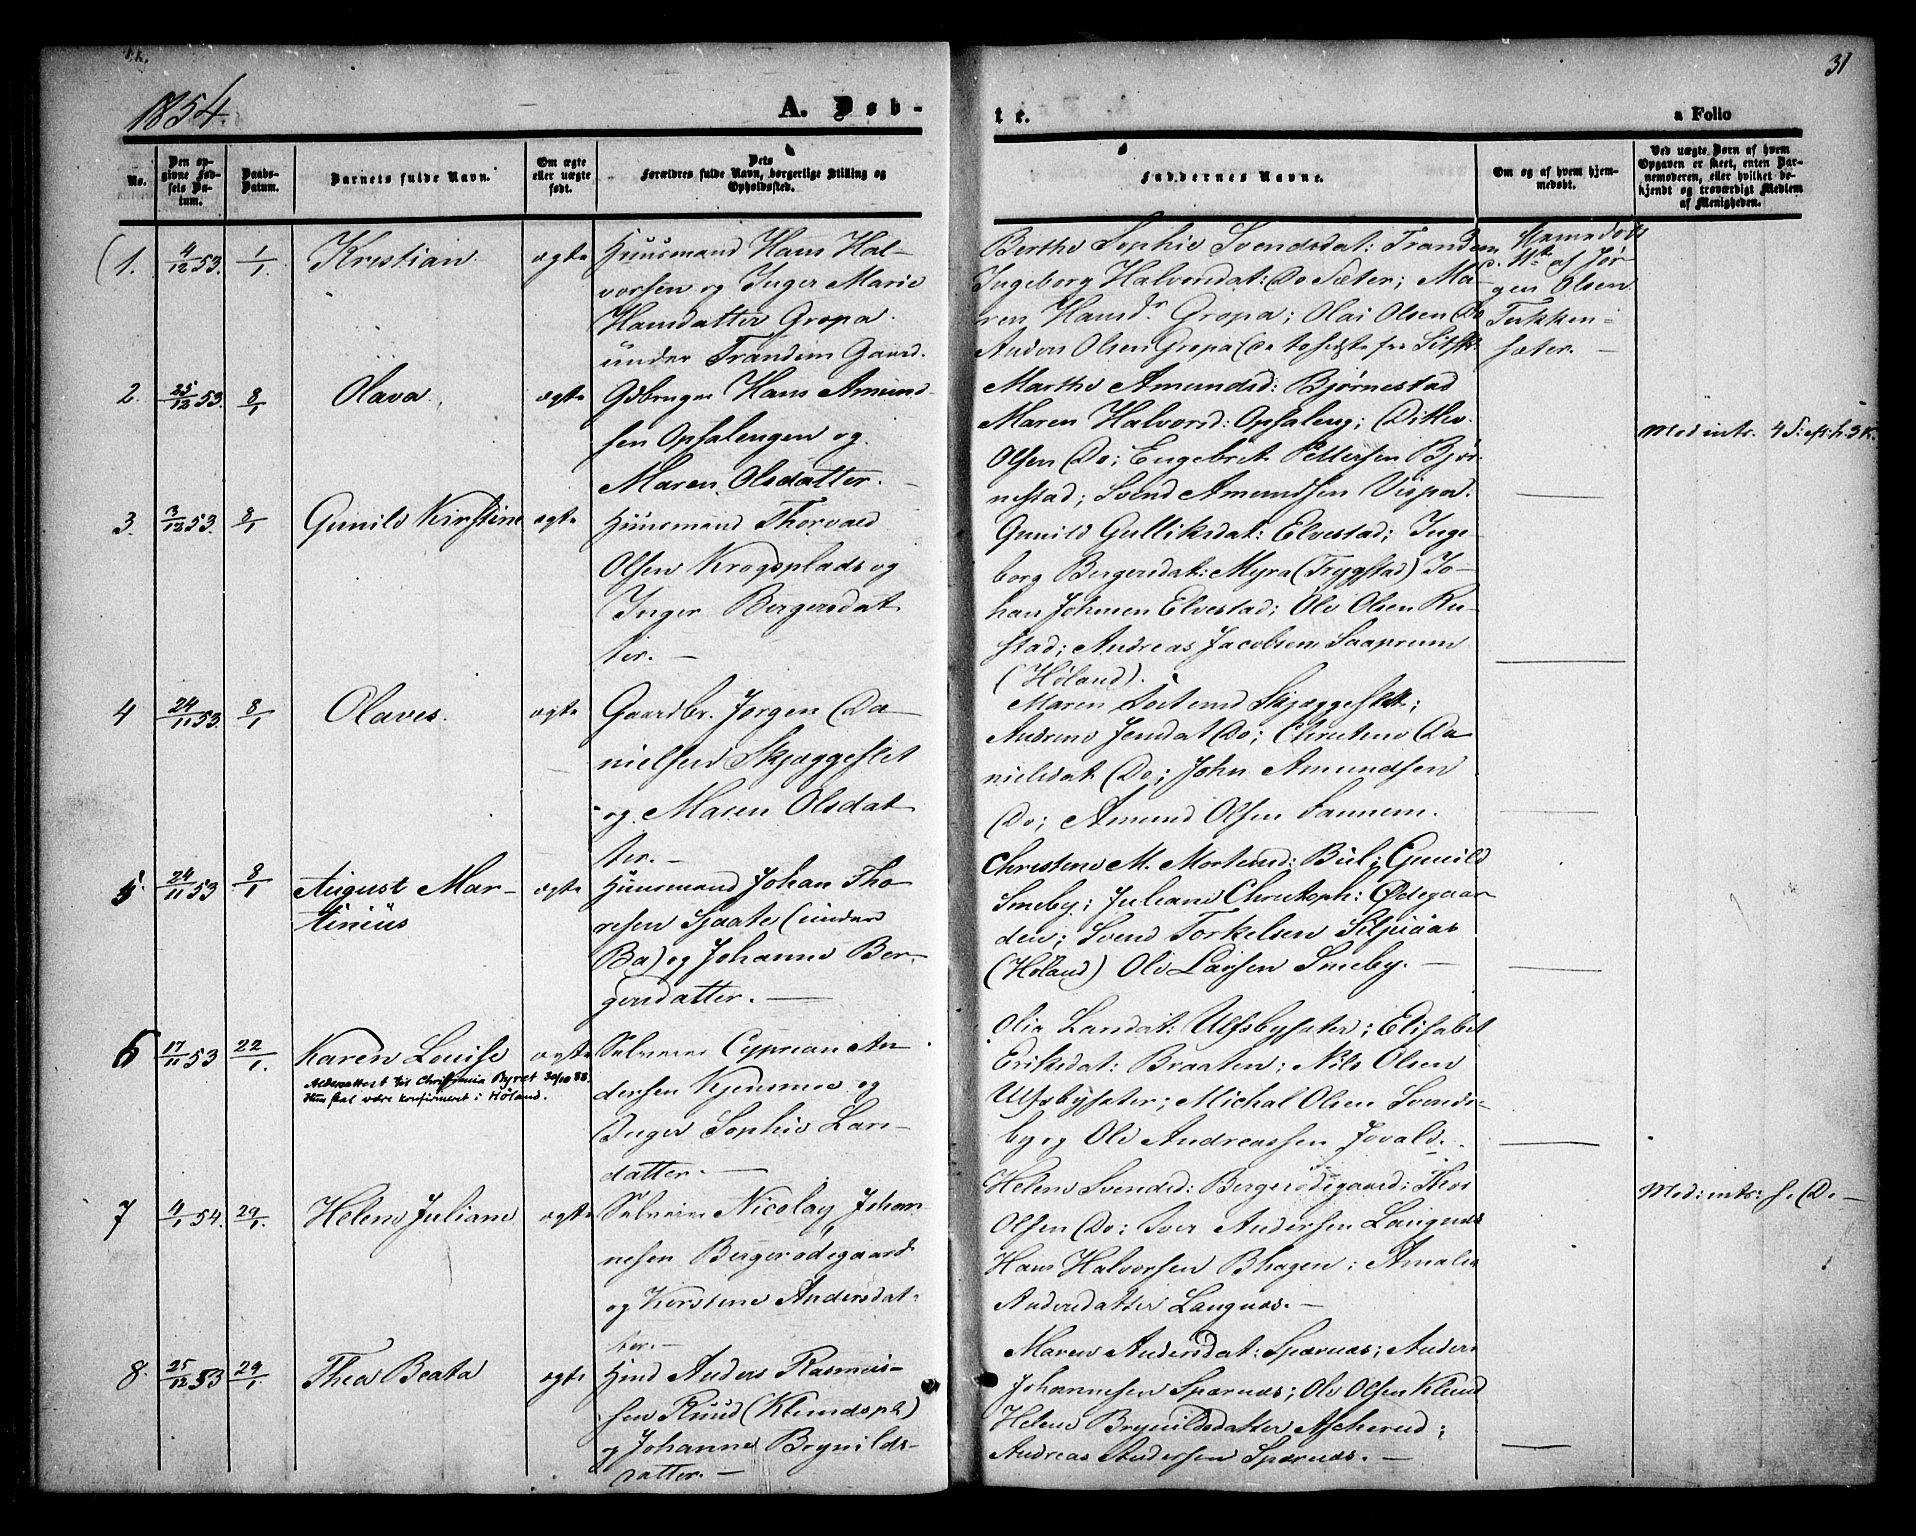 1854.
A. Døb-
te.
a Folio
31
No.
Den op-
givne Fød-
sels Da-
tum.
Daabs-
Datum.
Barnets fulde Navn.
Om ægte
eller uægte
født.
Dets
Forældres fulde Navn, borgerlige Stilling og
Opholdssted.
Faddernes Navne.
Om og af hvem hjem-
medøbt.
Ved uægte Børn af hvem
Opgaven er skeet, enten Bar-
nemoderen, eller hvilket be-
kjendt og troværdigt Medlem
af Menigheden.
1. 4/12 53. 1/1. Kristian. ægte
Huusmand Hans Hal-
vorsen og Inger Marie
Hansdatter Gropa
under Trandem Gaard.
Berthe Sophie Svendsdat: Trandem
Ingeborg Halvorsdat: Do Sæter; Ma-
ren Hansdr Gropa; Olai Olsen Do
Anders Olsen Gropa
Hjemedøbt
af Jør-
gen Olsen
Tukken-
sæter. —
2. 25/12 53. 8/1 Olava. ægte
Gdbruger Hans Amund-
sen Opsalengen og
Maren Olsdatter. —
Marthe Amundsd: Bjørnestad
Maren Halvorsd: Opsaleng; Ditlev
Olsen Do; Engebret Pettersen Bjør-
nestad; Svend Amundsen Vispa.
3. 3/12 53. 8/1 Gunild Kirstine ægte
Huusmand Thorvald
Olsen Krogsplads og
Inger Bergersdat
ter. —
Gunild Gulliksdat: Elvestad; Inge-
borg Bergersdat: Myra (Trygstad) Jo-
han Johnsen Elvestad; Ole Olsen Ru-
stad; Andreas Jacobsen Saaprum
(Høland).
4 24/11 53. 8/1 Olaves. ægte
Gaardbr. Jørgen Da-
nielsen Skjæggeslet
og Maren Olsdat
ter. —
Maren Skjæggeslet;
Andrine Jensdat Do; Christine Da-
nielsdat Do; John Amundsen
Do; Amund Olsen Sannem.
5. 24/11 53 8/1 August Mar-
tinius ægte
Huusmand Johan Tho-
resen Sjaate (under
Ba) og Johanne Ber-
gersdatter. —
Christine M. Mortensd: Bul; Gunild
Smeby; Juliane Christoph: Ødegaar-
den; Svend Torkelsen Siljeaas
(Høland) Ole Larsen Smeby. —
6 17/11 53 22/1. Karen Louise ægte
Aldersattest til Christiania Byret 30/10 88.
Hun skal være konfirmeret i Høland.
Selveier Cyprian An-
dersen Kjensmoe og
Inger Sophie Lars-
datter. —
Olia Larsdat: Ulfsbysæter; Elisabet
Eriksdat: Braaten; Nils Olsen
Ulfsbysæter; Michal Olsen Svends-
by og Ole Andreassen Jovald.
7 4/1 54. 29/1. Helene Juliane ægte
Selveier Nicolay Johan-
nesen Bergerødegaard
og Kirstine Andersdat-
ter. —
Helene Svendsd: Bergerødegaard; Thor
Olsen Do; Iver Andersen Langnæs
Hans Halvorsen Bhagen; Amalia
Andersdatter Langnæs. —
8. 25/12 53 29/1. Thea Beata ægte
Hmd Anders Rasmus-
sen Ruud (Klundspl)
og Johanne Brynilds-
datter. —
Maren Andersdat: Spærnæs; Anders
Johannesen Spærnæs; Ole Olsen Klund
Helene Brynildsdatter Ascherud;
Andreas Andersen Spærnæs. —